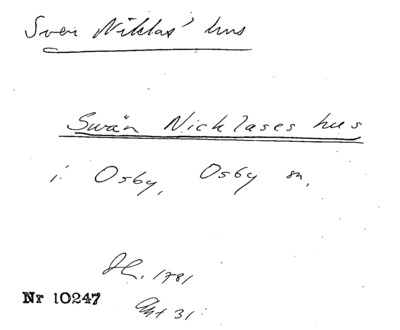 Sven Niklas' hus
Swän Nicklases hus
i Osby, Osby sn,
1781
Nr 10247
Akt 31